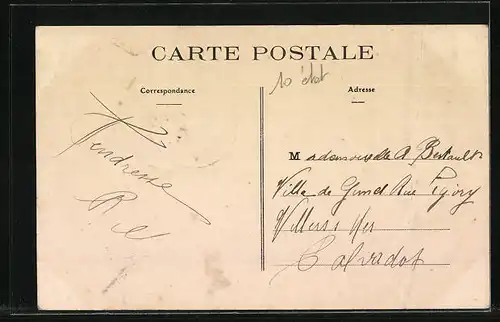 CARTE POSTALE
Correspondance
Adresse
Tendresse
Mademoiselle A Bertault
Villa de Grand Rue
Villers s/ Mer
Calvados